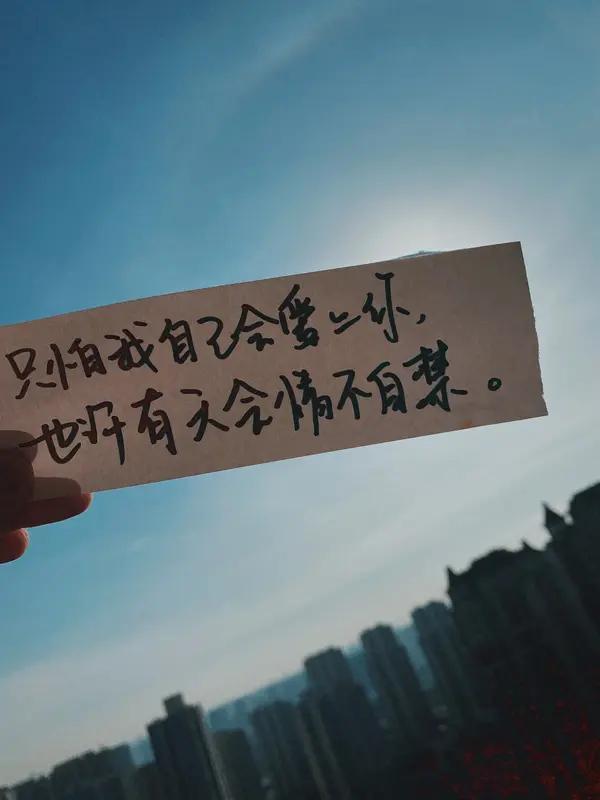 只怕我自己会爱上你，
也许有天会情不自禁。